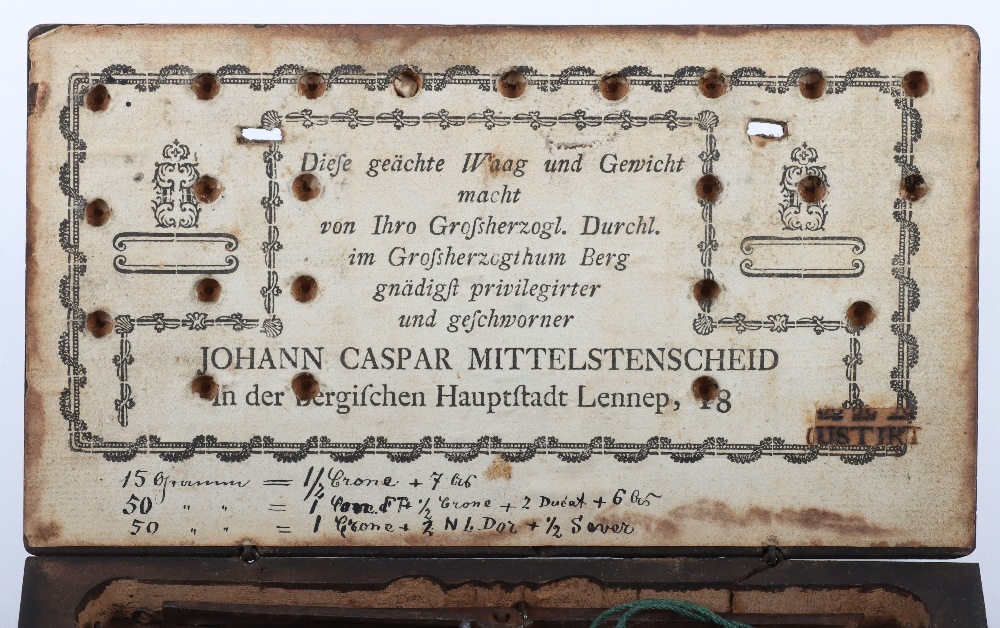 Dieſe geächte Waag und Gewicht
macht
von Ihro Groſsherzogl. Durchl.
im Groſsherzogthum Berg
gnädigſt privilegirter
und geſchworner
JOHANN CASPAR MITTELSTENSCHEID
in der Bergiſchen Hauptſtadt Lennep, 18
JUSTIRT
15 Gramm = 1/2 Crone + 7
50 " " = 1 1/2 Crone + 2 Ducat + 6
50 " " = 1 Crone + 2 N L. Dor + 1/2 Sover